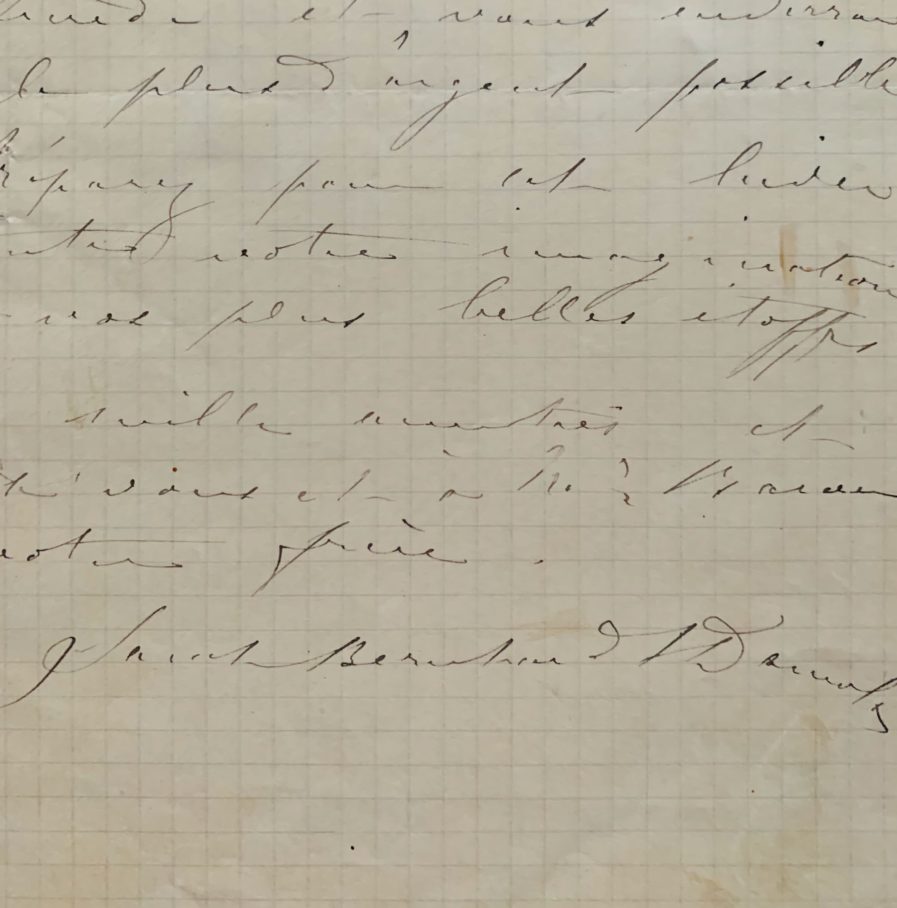 et vous enverrai
le plus d'argent possible
préparez pour cet hiver
toute votre imagination
vos plus belles étoffes
mille amitiés et
à vous et à
votre frère.
Sarah Bernhardt Damala